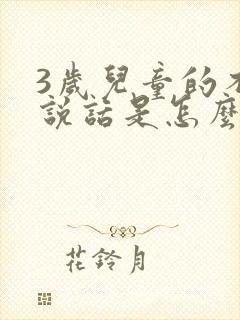 3歲兒童的不
說話是怎麼
花鈴月